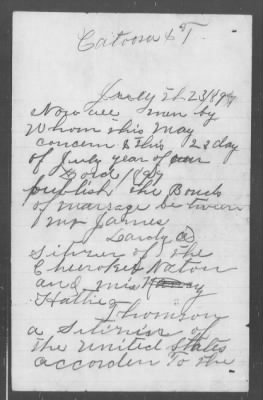 Catoosa I T.
July 23/1897
Now all men by
Whom this May
Concern to this 23 day
of July year of our
Lord 1897
publish the Bonds
of marrage be twien
Mr James
Lardy a
Sitizen of the
Cherokee Nation
and miss Nancy
Hattie
Thomson
a Sitizen of
the United States
accorden To the